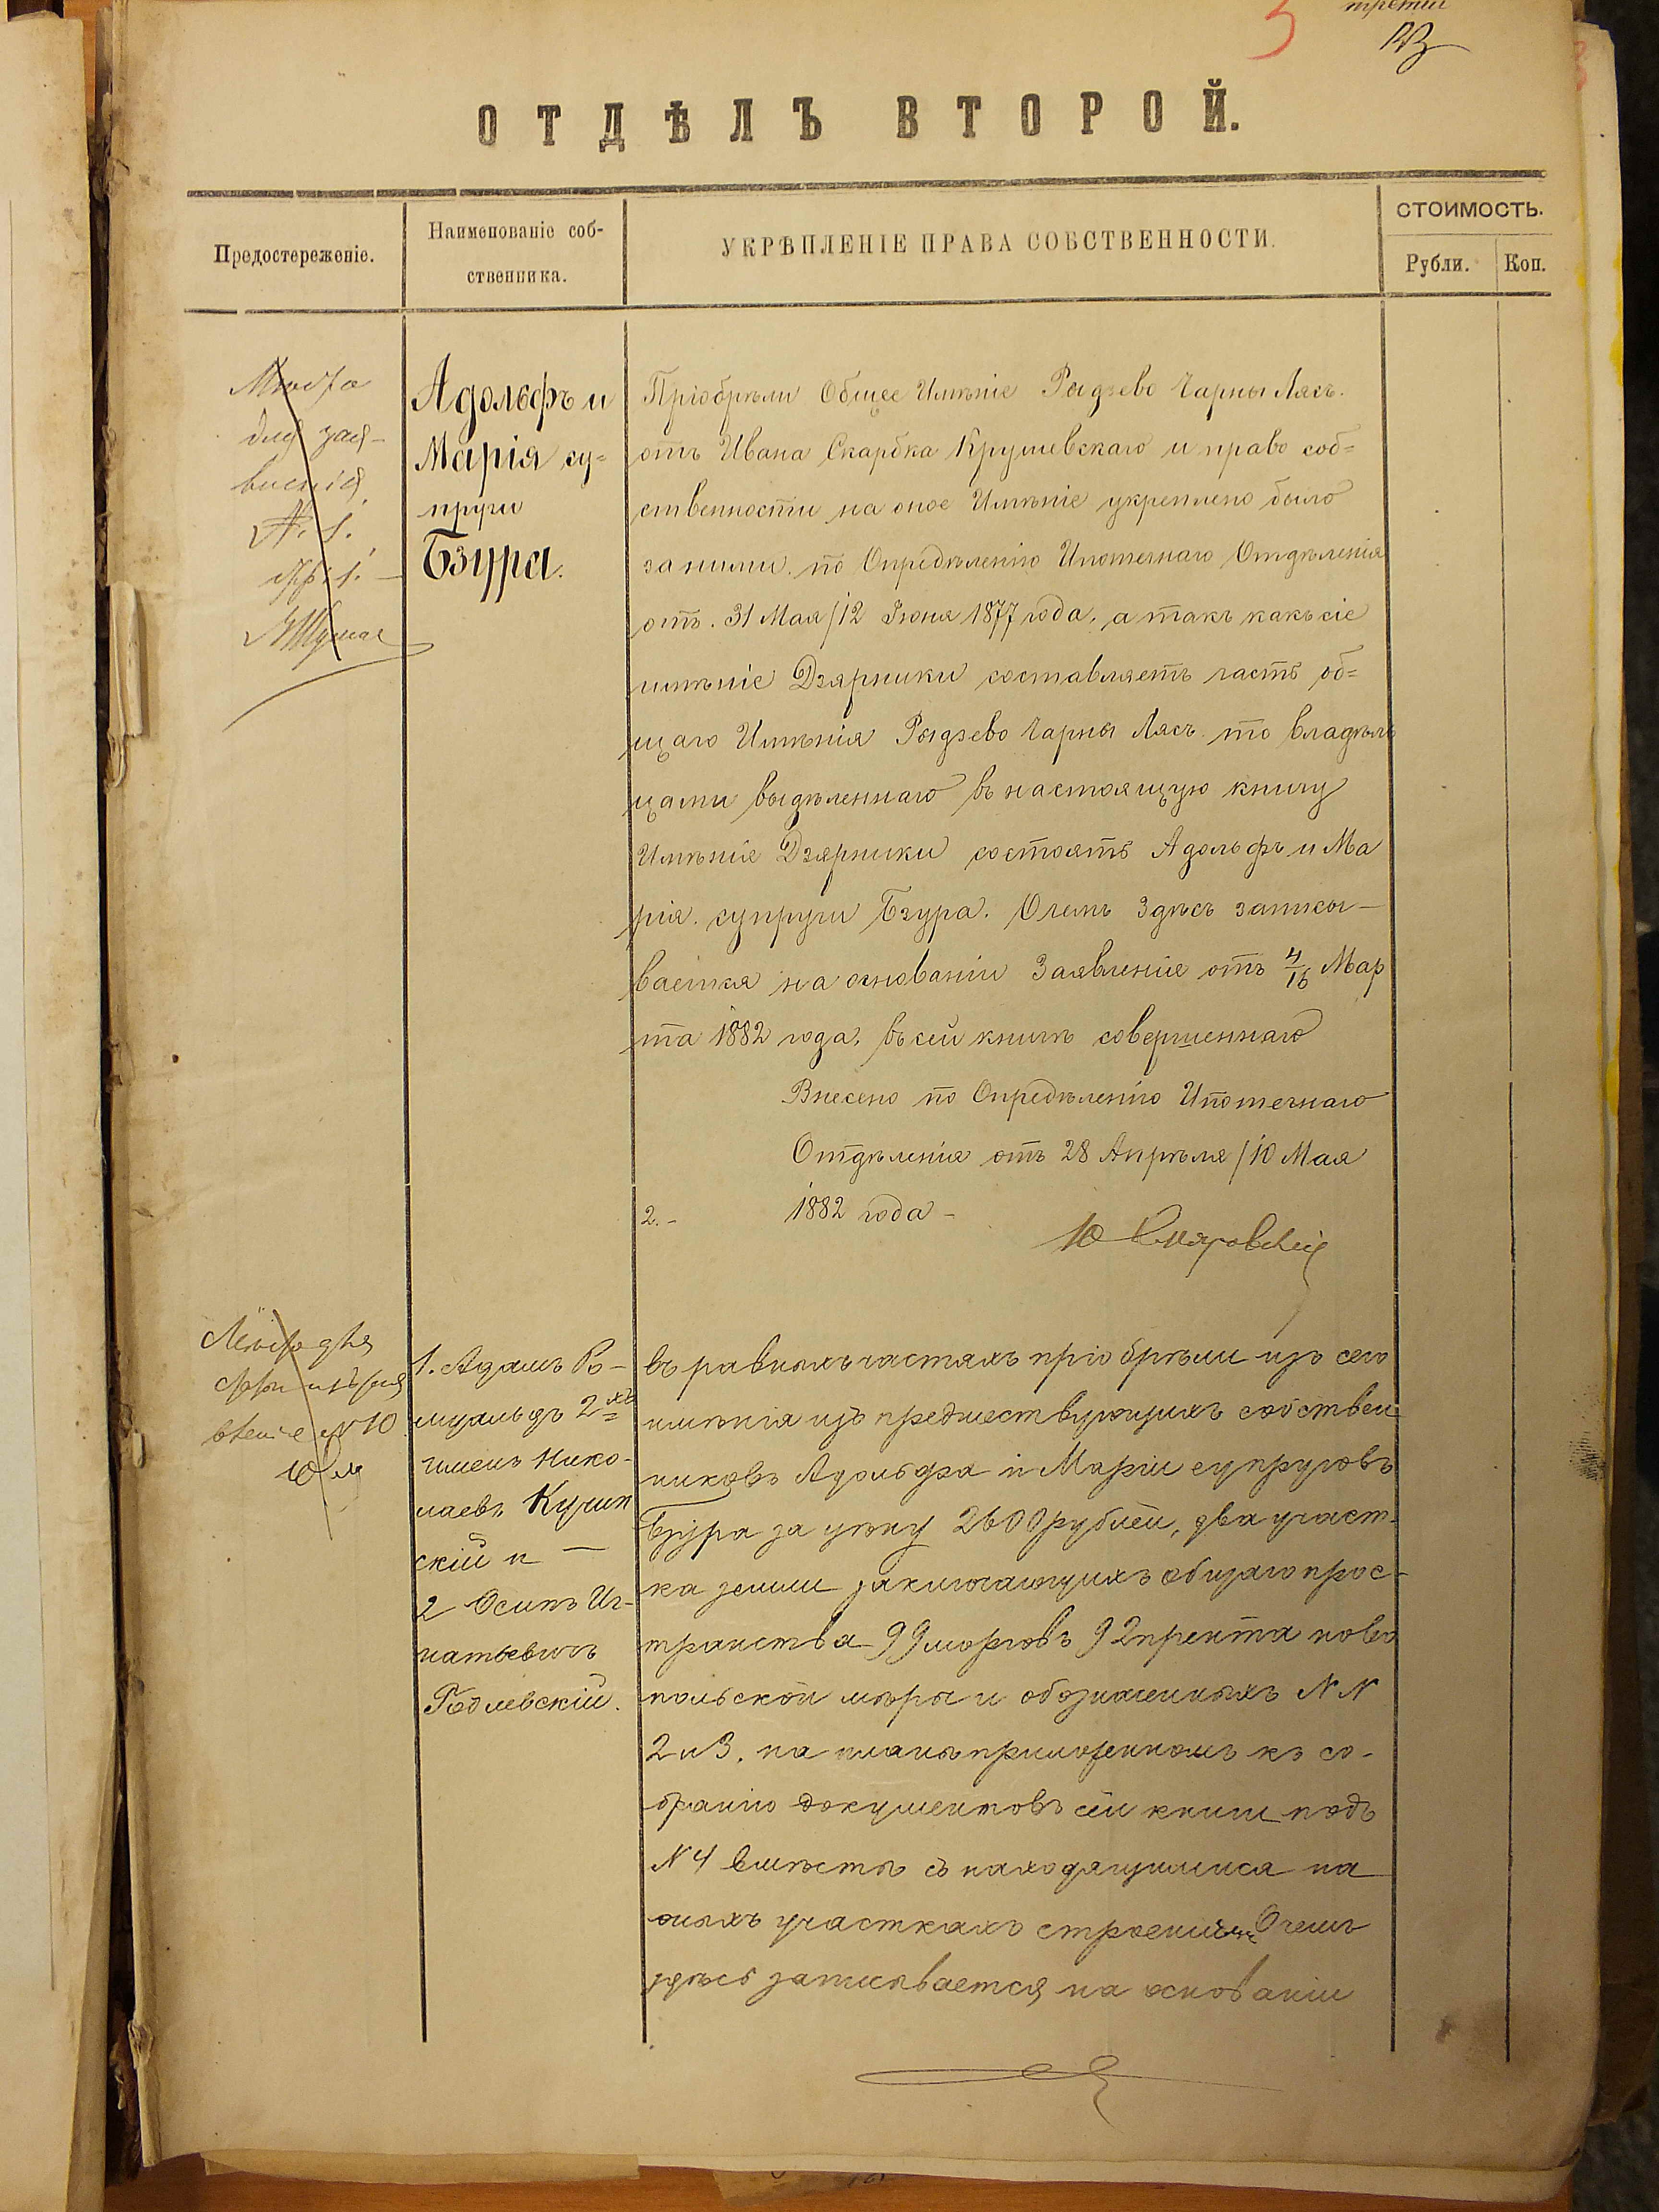 3
третій
ОТДѢЛЪ ВТОРОЙ.
Предостереженіе.
Наименованіе соб-
ственника.
УКРѢПЛЕНІЕ ПРАВА СОБСТВЕННОСТИ.
СТОИМОСТЬ.
Рубли.
Коп.
Мѣсто
для зая-
вленія
№ 1.
стр. 1.
Адольфъ и
Марія су=
пруги
Бзура.
Пріобрѣли Общее Имѣніе Рыдзево Чарны Лясъ.
отъ Ивана Скарбка Крушевскаго и право соб=
ственности на оное Имѣніе укреплено было
за ними. по Опредѣленію Ипотечнаго Отдѣленія
отъ. 31 Мая/12 Іюня 1877 года. а такъ какъ сіе
имѣніе Дзярники составляетъ часть об=
щаго Имѣнія Рыдзево Чарны Лясъ. то владѣль
цами выдѣленнаго въ настоящую книгу
Имѣніе Дзярники состоятъ Адольфъ и Ма
рія. супруги Бзура. О чемъ здѣсь записы-
вается на основаніи Заявленіе отъ 4/16 Мар
та 1882 года. въ сей книгѣ совершеннаго
Внесено по Опредѣленію Ипотечнаго
Отдѣленія отъ 28 Апрѣля/10 Мая
2.- 1882 года -
Мѣсто для
вленіе №10
1. Адамъ Ро-
муальдъ 2хъ
именъ Нико-
лаевъ
скій и —
2 Осипъ Иг-
натьевичъ
Годлевскій.
въ равныхъ частяхъ пріобрѣли изъ сего
имѣнія изъ предшествующихъ собствен
никовъ Адольфа и Маріи супруговъ
Бзура за цѣну 2600 рублей, два участ-
ка земли заключающихъ общаго прос-
транства 99 морговъ 92 прента ново
польской мѣры и обозначенныхъ NN
2 и 3. на планѣ приложенномъ къ со-
бранію документовъ сей книги подъ
N 4 вмѣстѣ съ находящимися на
оныхъ участкахъ строеніями О чемъ
здѣсь записывается на основаніи